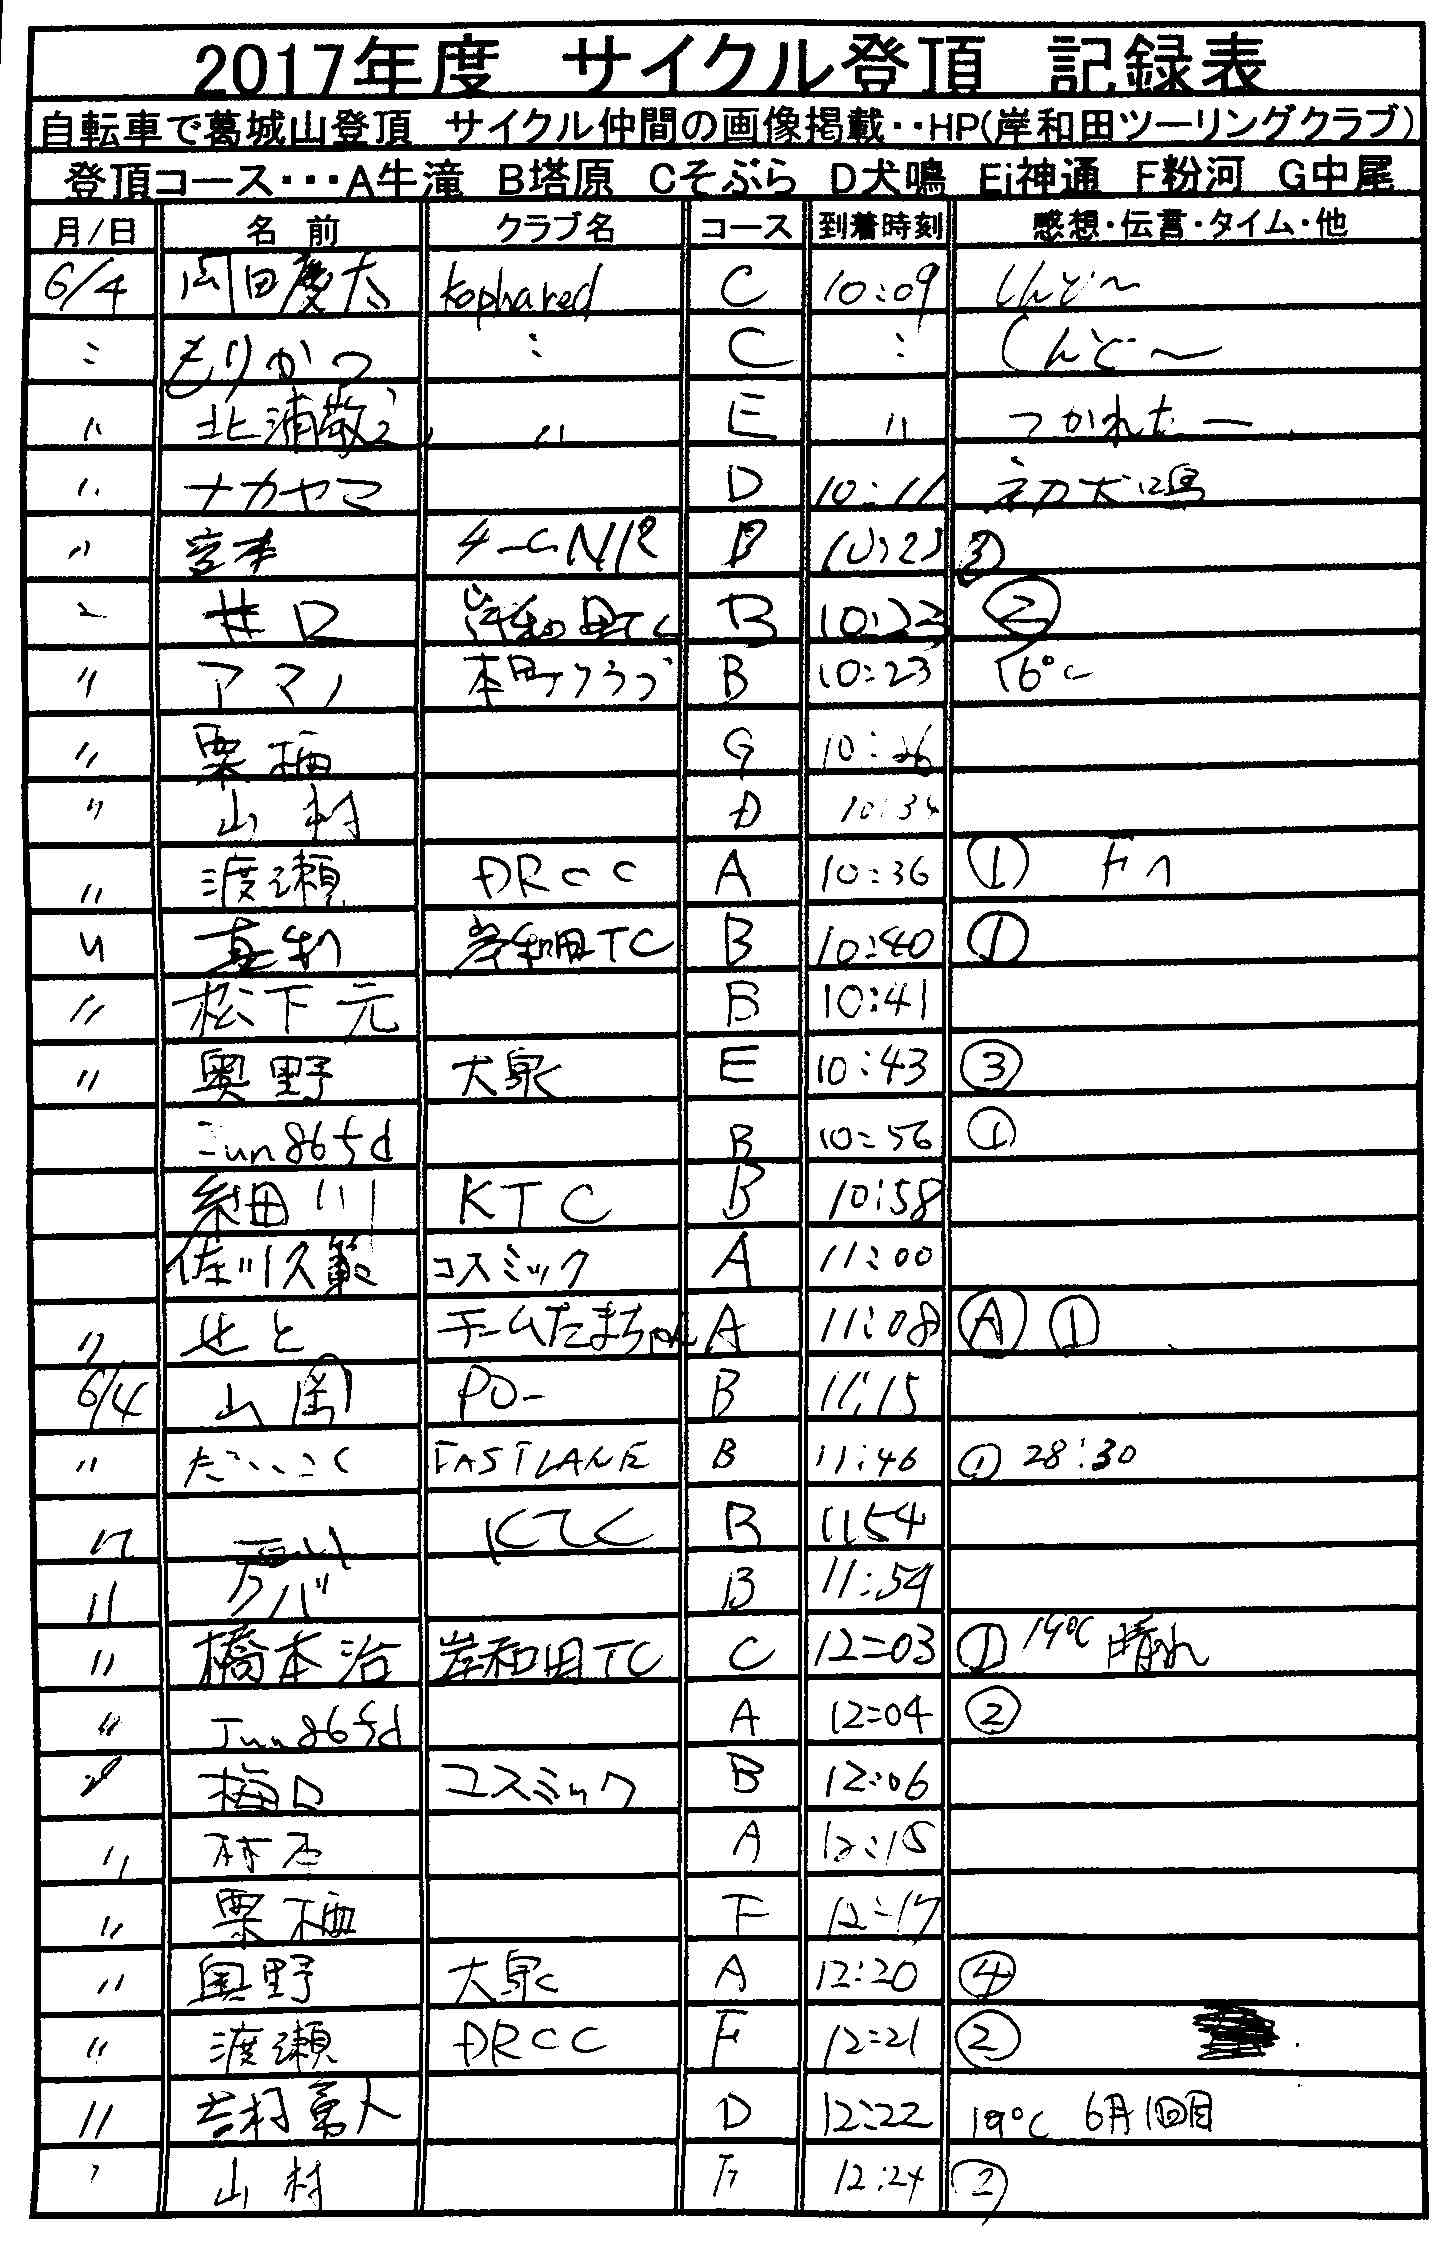 2017年度 サイクル登頂 記録表
自転車で葛城山登頂 サイクル仲間の画像掲載・・HP(岸和田ツーリングクラブ)
登頂コース・・・A牛滝 B塔原 Cそぶら D犬鳴 Ei神通 F粉河 G中尾
月/日 名前 クラブ名 コース 到着時刻 感想・伝言・タイム・他
6/4 岡田慶太 kophared C 10:09 しんど〜
〃 もりかつ 〃 C 〃 しんど〜
〃 北浦敬 〃 E 〃 つかれたー
〃 ナカヤマ D 10:11 初犬鳴
〃 宮本 チームNR B 10:23 ③
〃 井口 岸和田TC B 10:23 ②
〃 アマノ 本町クラブ B 10:23 16℃
〃 栗栖 G 10:26
〃 山村 D 10:34
〃 渡瀬 DRCC A 10:36 ①
〃 真利 岸和田TC B 10:40 ①
〃 松下元 B 10:41
〃 奥野 大泉 E 10:43 ③
Jun865fd B 10:56 ①
細川 KTC B 10:58
佐川久範 コスミック A 11:00
〃 せと チームたまちゃん A 11:08 Ⓐ ①
6/4 山岡 PO- B 11:15
〃 だいこく FASTLANE B 11:46 ① 28:30
〃 KTC B 1154
〃 B 11:54
〃 橋本治 岸和田TC C 12:03 ① 19℃ 晴れ
〃 Jun865fd A 12:04 ②
〃 梅口 コスミック B 12:06
〃 A 12:15
〃 栗栖 F 12:17
〃 奥野 大泉 A 12:20 ④
〃 渡瀬 DRCC F 12:21 ②
〃 吉村 D 12:22 19℃ 6月1回目
〃 山村 F 12:24 ②